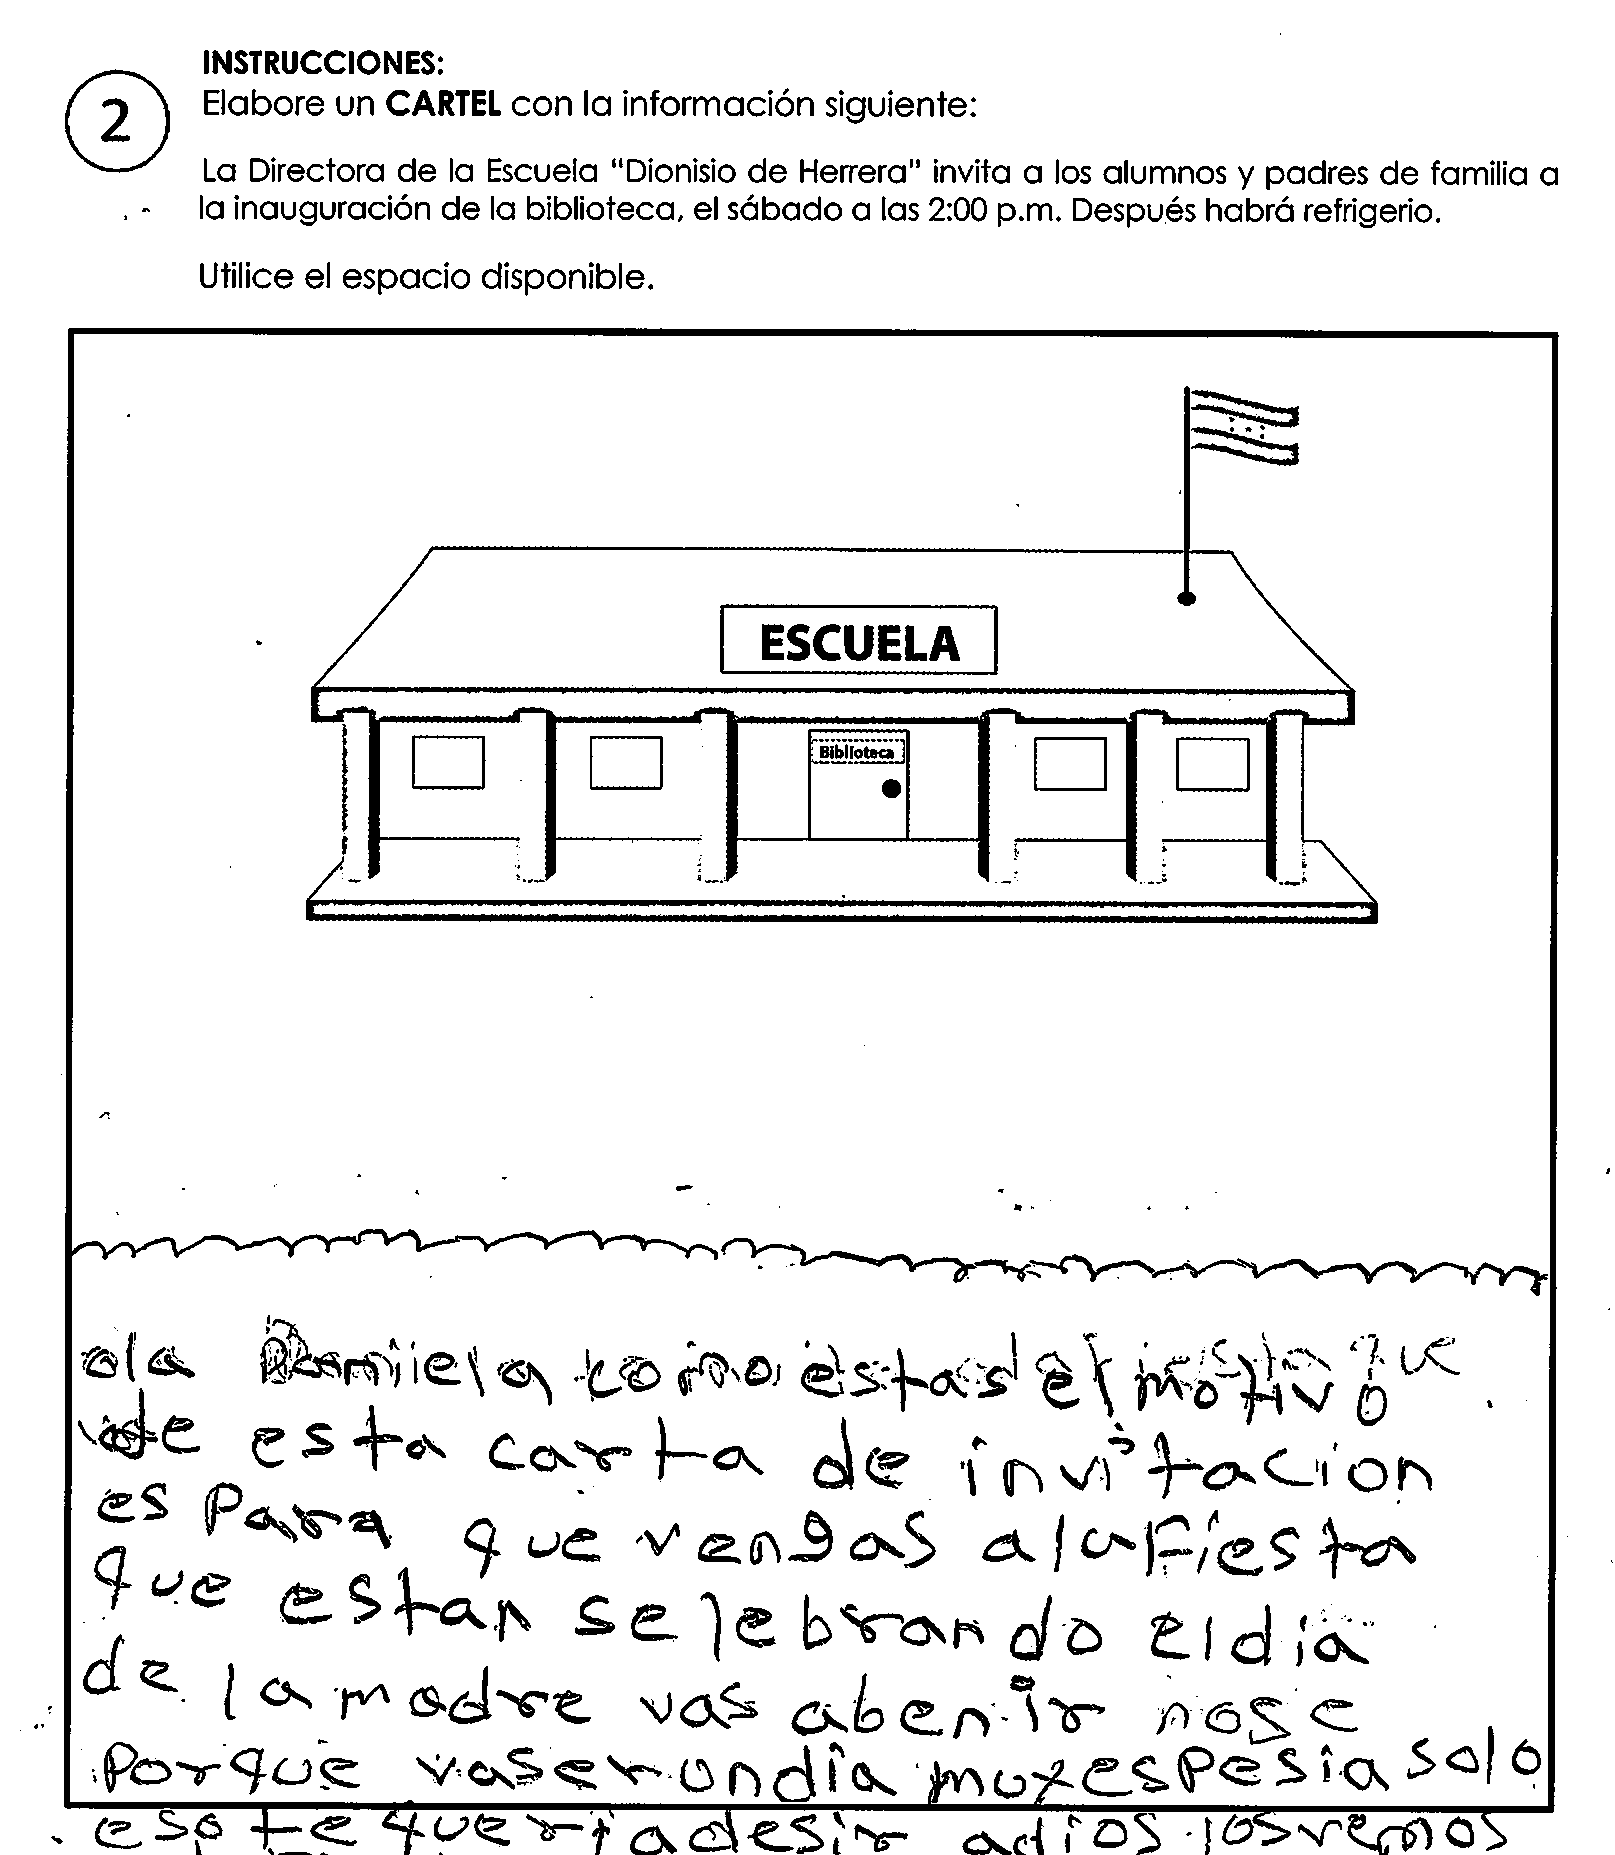 INSTRUCCIONES:
2
Elabore un CARTEL con la información siguiente:
La Directora de la Escuela "Dionisio de Herrera" invita a los alumnos y padres de familia a
la inauguración de la biblioteca, el sábado a las 2:00 p.m. Después habrá refrigerio.
Utilice el espacio disponible.
ESCUELA
Biblioteca
ola como estas el motivo que
de esta carta de invitacion
es para que vengas a la fiesta
que estan selebrando el dia
de la madre vas abenir nose
porque vaser un dia muy espesia solo
eso te queria desir adios